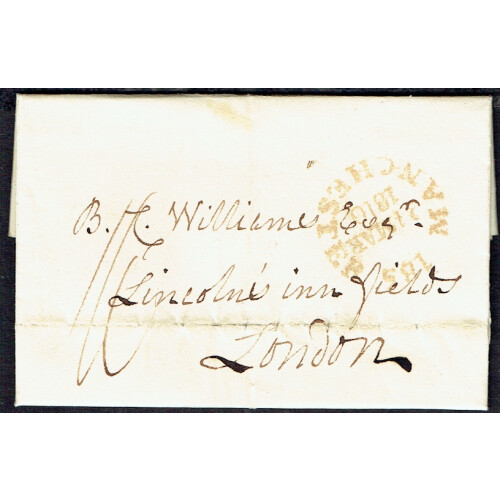 B. C. Williams Esqr.
Lincoln's inn fields
London
MANCHESTER
1810
185